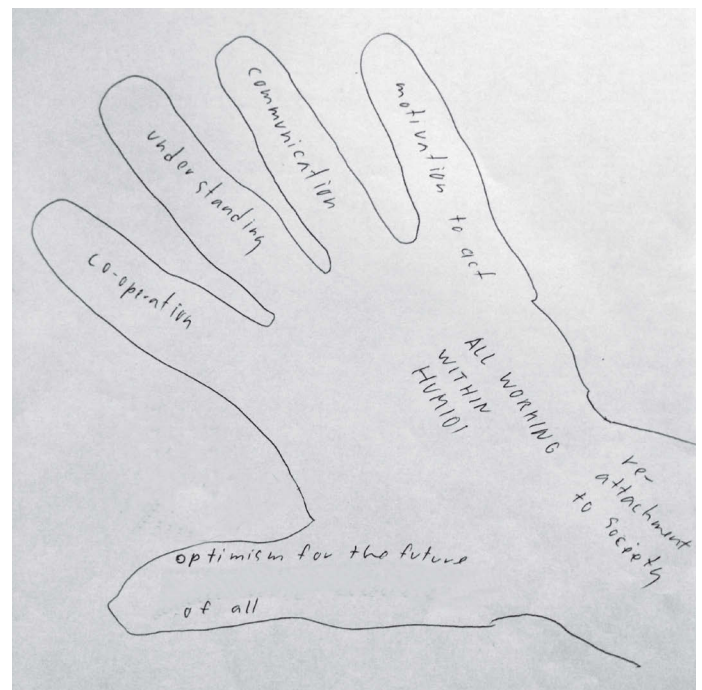 co-operation
understanding
communication
motivation to act
ALL WORKING
WITHIN
HUMIOI
re-
attachment
to society
optimism for the future
of all